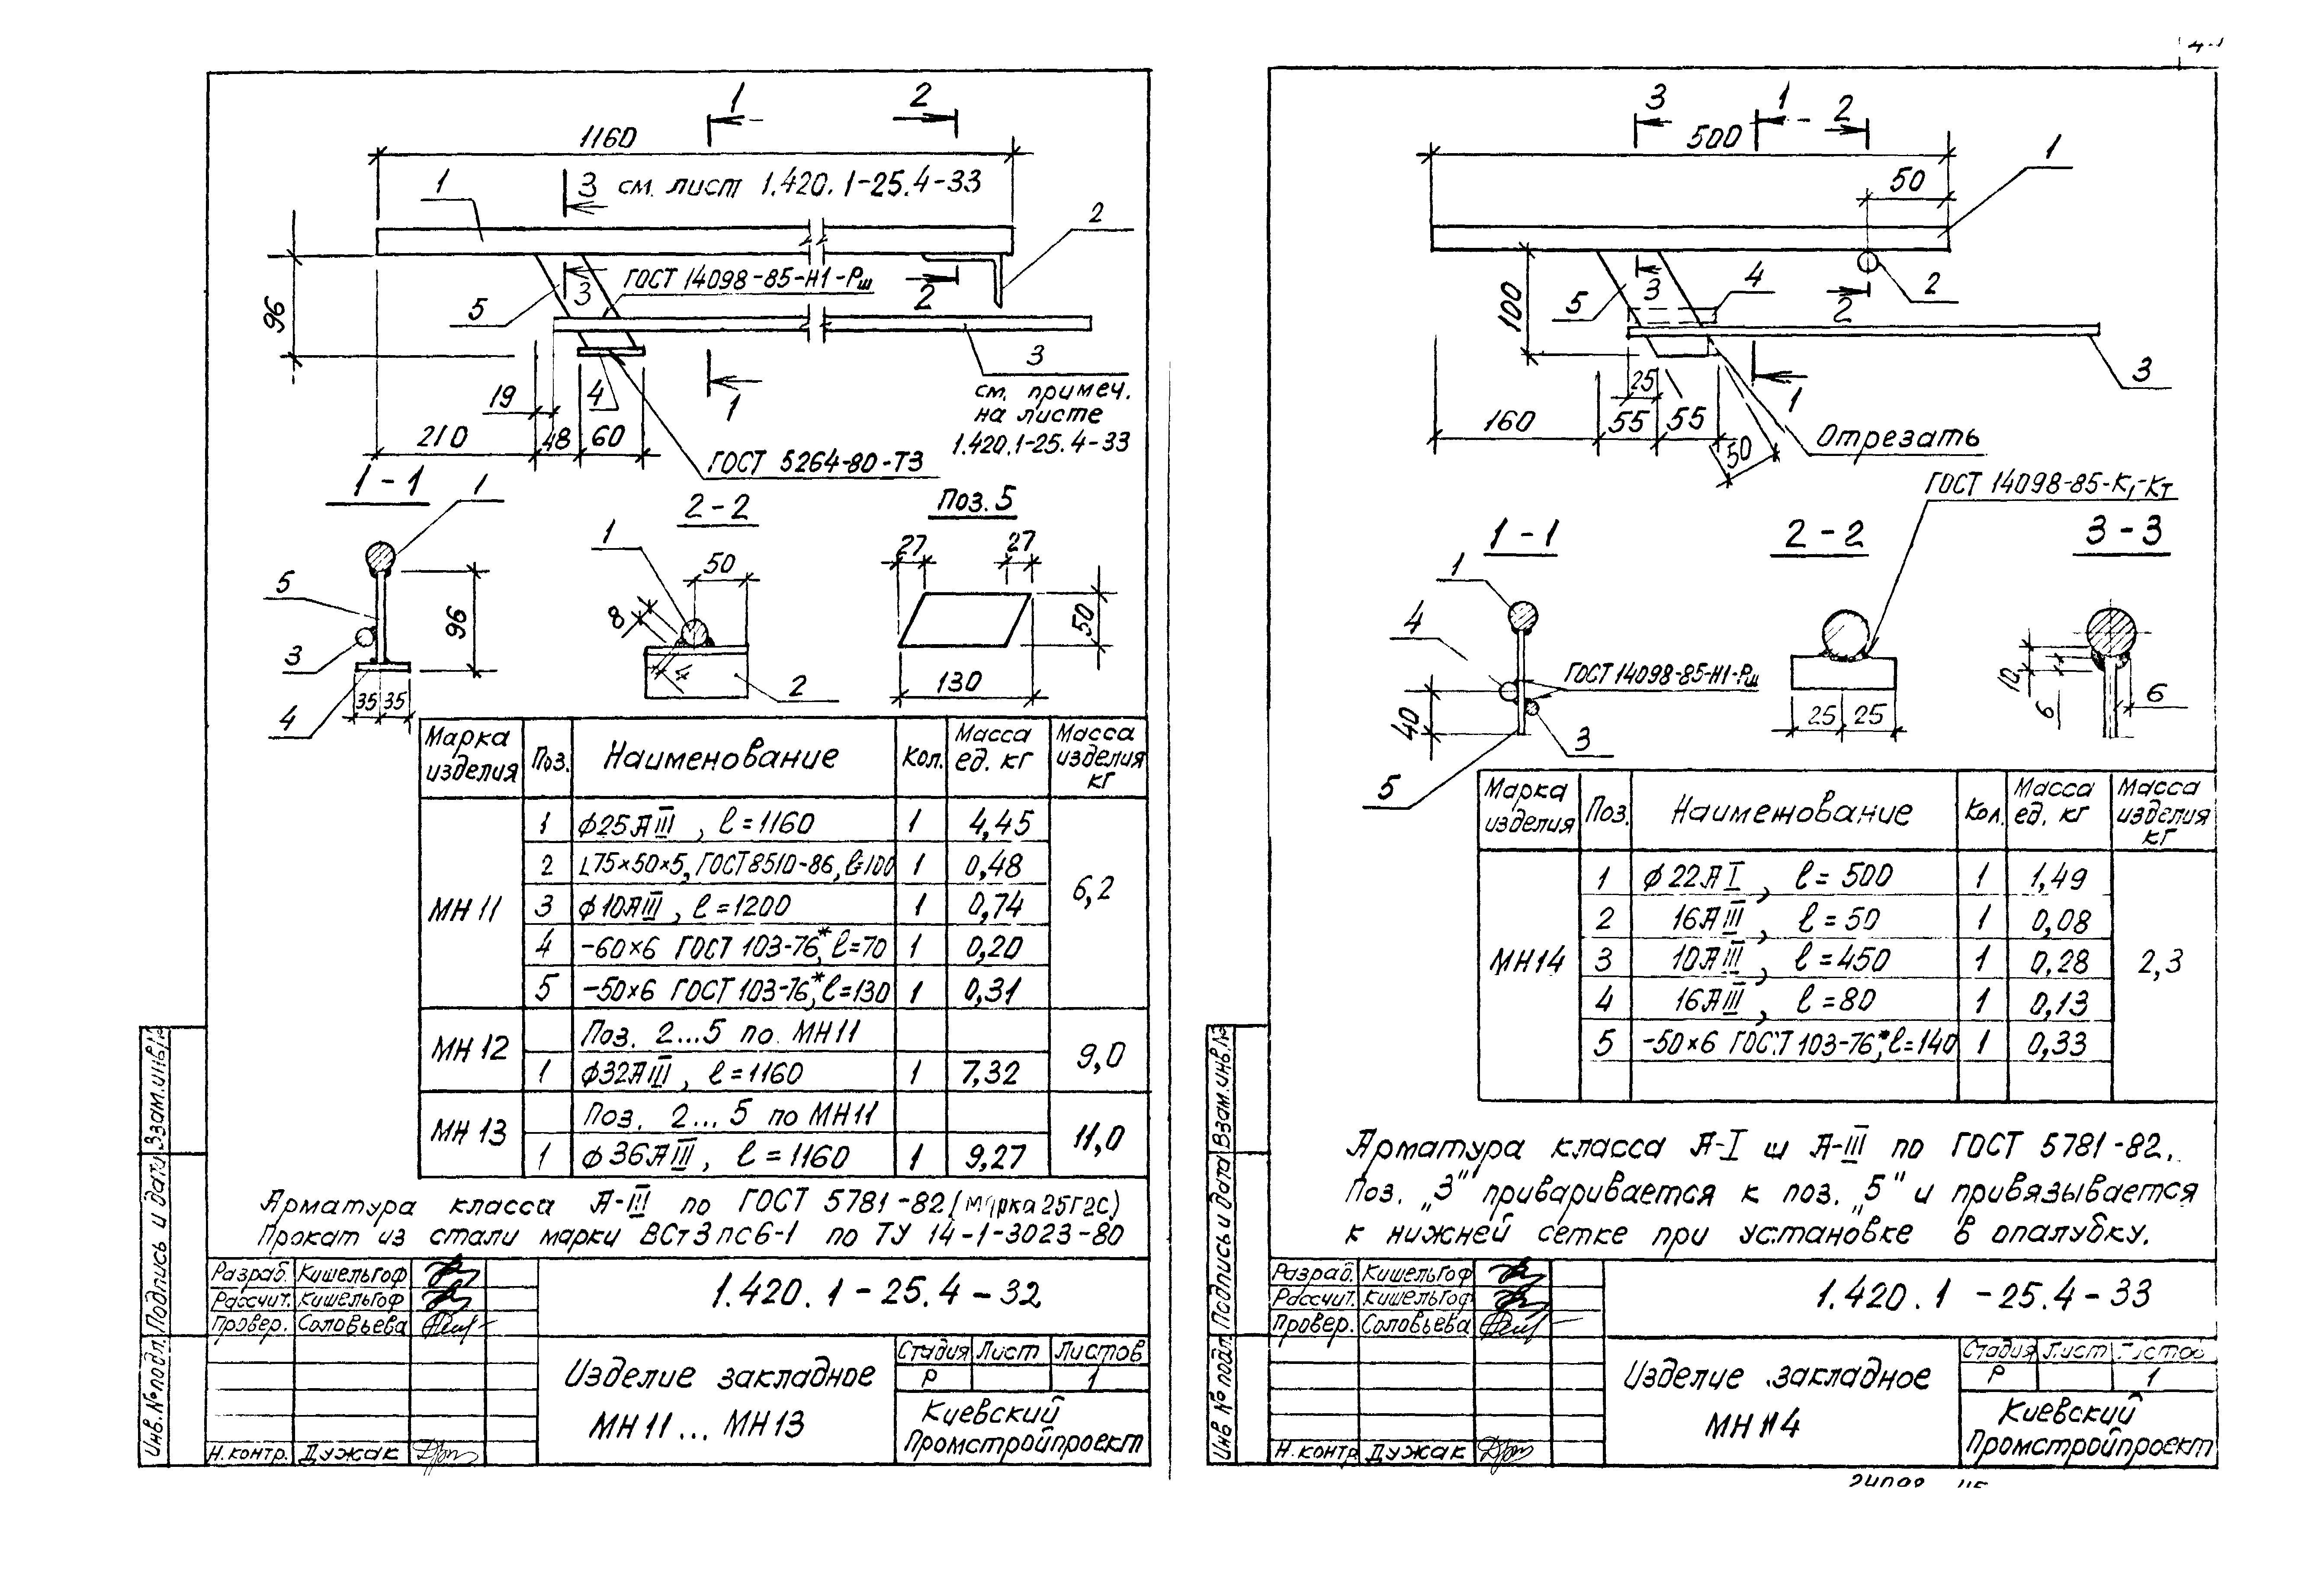 1160
1
2
3 см. лист 1.420.1-25.4-33
1
2
96
5
3
ГОСТ 14098-85-Н1-Рш
2
3
см. примеч.
на листе
1.420.1-25.4-33
19
4
1
210
48
60
ГОСТ 5264-80-Т3
1-1
1
5
3
4
96
35 35
2-2
1
50
8
2
Поз. 5
27
27
50
130
Марка изделия Поз. Наименование Кол. Масса ед. кг Масса изделия кг
МН 11 6,2
1 ϕ25АIII, ℓ=1160 1 4,45
2 L75×50×5, ГОСТ 8510-86, ℓ=100 1 0,48
3 ϕ10АIII, ℓ=1200 1 0,74
4 -60×6 ГОСТ 103-76*, ℓ=70 1 0,20
5 -50×6 ГОСТ 103-76*, ℓ=130 1 0,31
МН 12 Поз. 2...5 по МН11 9,0
1 ϕ32АIII, ℓ=1160 1 7,32
МН 13 Поз. 2...5 по МН11 11,0
1 ϕ36АIII, ℓ=1160 1 9,27
Арматура класса А-III по ГОСТ 5781-82 (марка 25Г2С)
Прокат из стали марки ВСт3пс6-1 по ТУ 14-1-3023-80
Разраб. Кишельгоф
Рассчит. Кишельгоф
Провер. Соловьева
Н.контр. Дужак
1.420.1-25.4-32
Изделие закладное
МН 11... МН 13
Стадия Лист Листов
Р 1
Киевский
Промстройпроект
Инв.№подл. Подпись и дата Взам.инв.№
3
1
2
500
1
50
100
5
3
4
2
2
3
25
1
160
55
55
50
Отрезать
ГОСТ 14098-85-К1-Кт
1-1
1
4
ГОСТ 14098-85-Н1-Рш
40
3
5
2-2
25 25
3-3
10
6
6
Марка изделия Поз. Наименование Кол. Масса ед. кг Масса изделия кг
МН14 2,3
1 ϕ22АI, ℓ=500 1 1,49
2 16АIII, ℓ=50 1 0,08
3 10АIII, ℓ=450 1 0,28
4 16АIII, ℓ=80 1 0,13
5 -50×6 ГОСТ 103-76*, ℓ=140 1 0,33
Арматура класса А-I и А-III по ГОСТ 5781-82.
Поз. „3" приваривается к поз. „5" и привязывается
к нижней сетке при установке в опалубку.
Разраб. Кишельгоф
Рассчит. Кишельгоф
Провер. Соловьева
Н.контр. Дужак
1.420.1-25.4-33
Изделие закладное
МН 14
Стадия Лист Листов
Р 1
Киевский
Промстройпроект
Инв.№подл. Подпись и дата Взам.инв.№